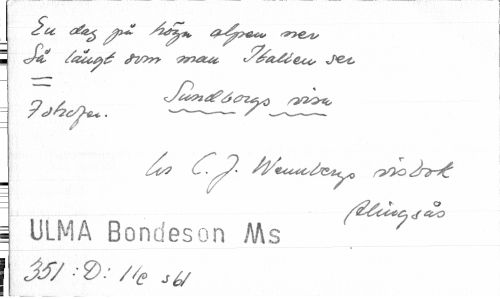 En dag på höga alpen ner
Så långt som man Italien ser
=
Sundborgs visa
7 strofer.
ur C. J. Wennbergs visbok
Alingsås
ULMA Bondeson Ms
351 :D: 11e s 61